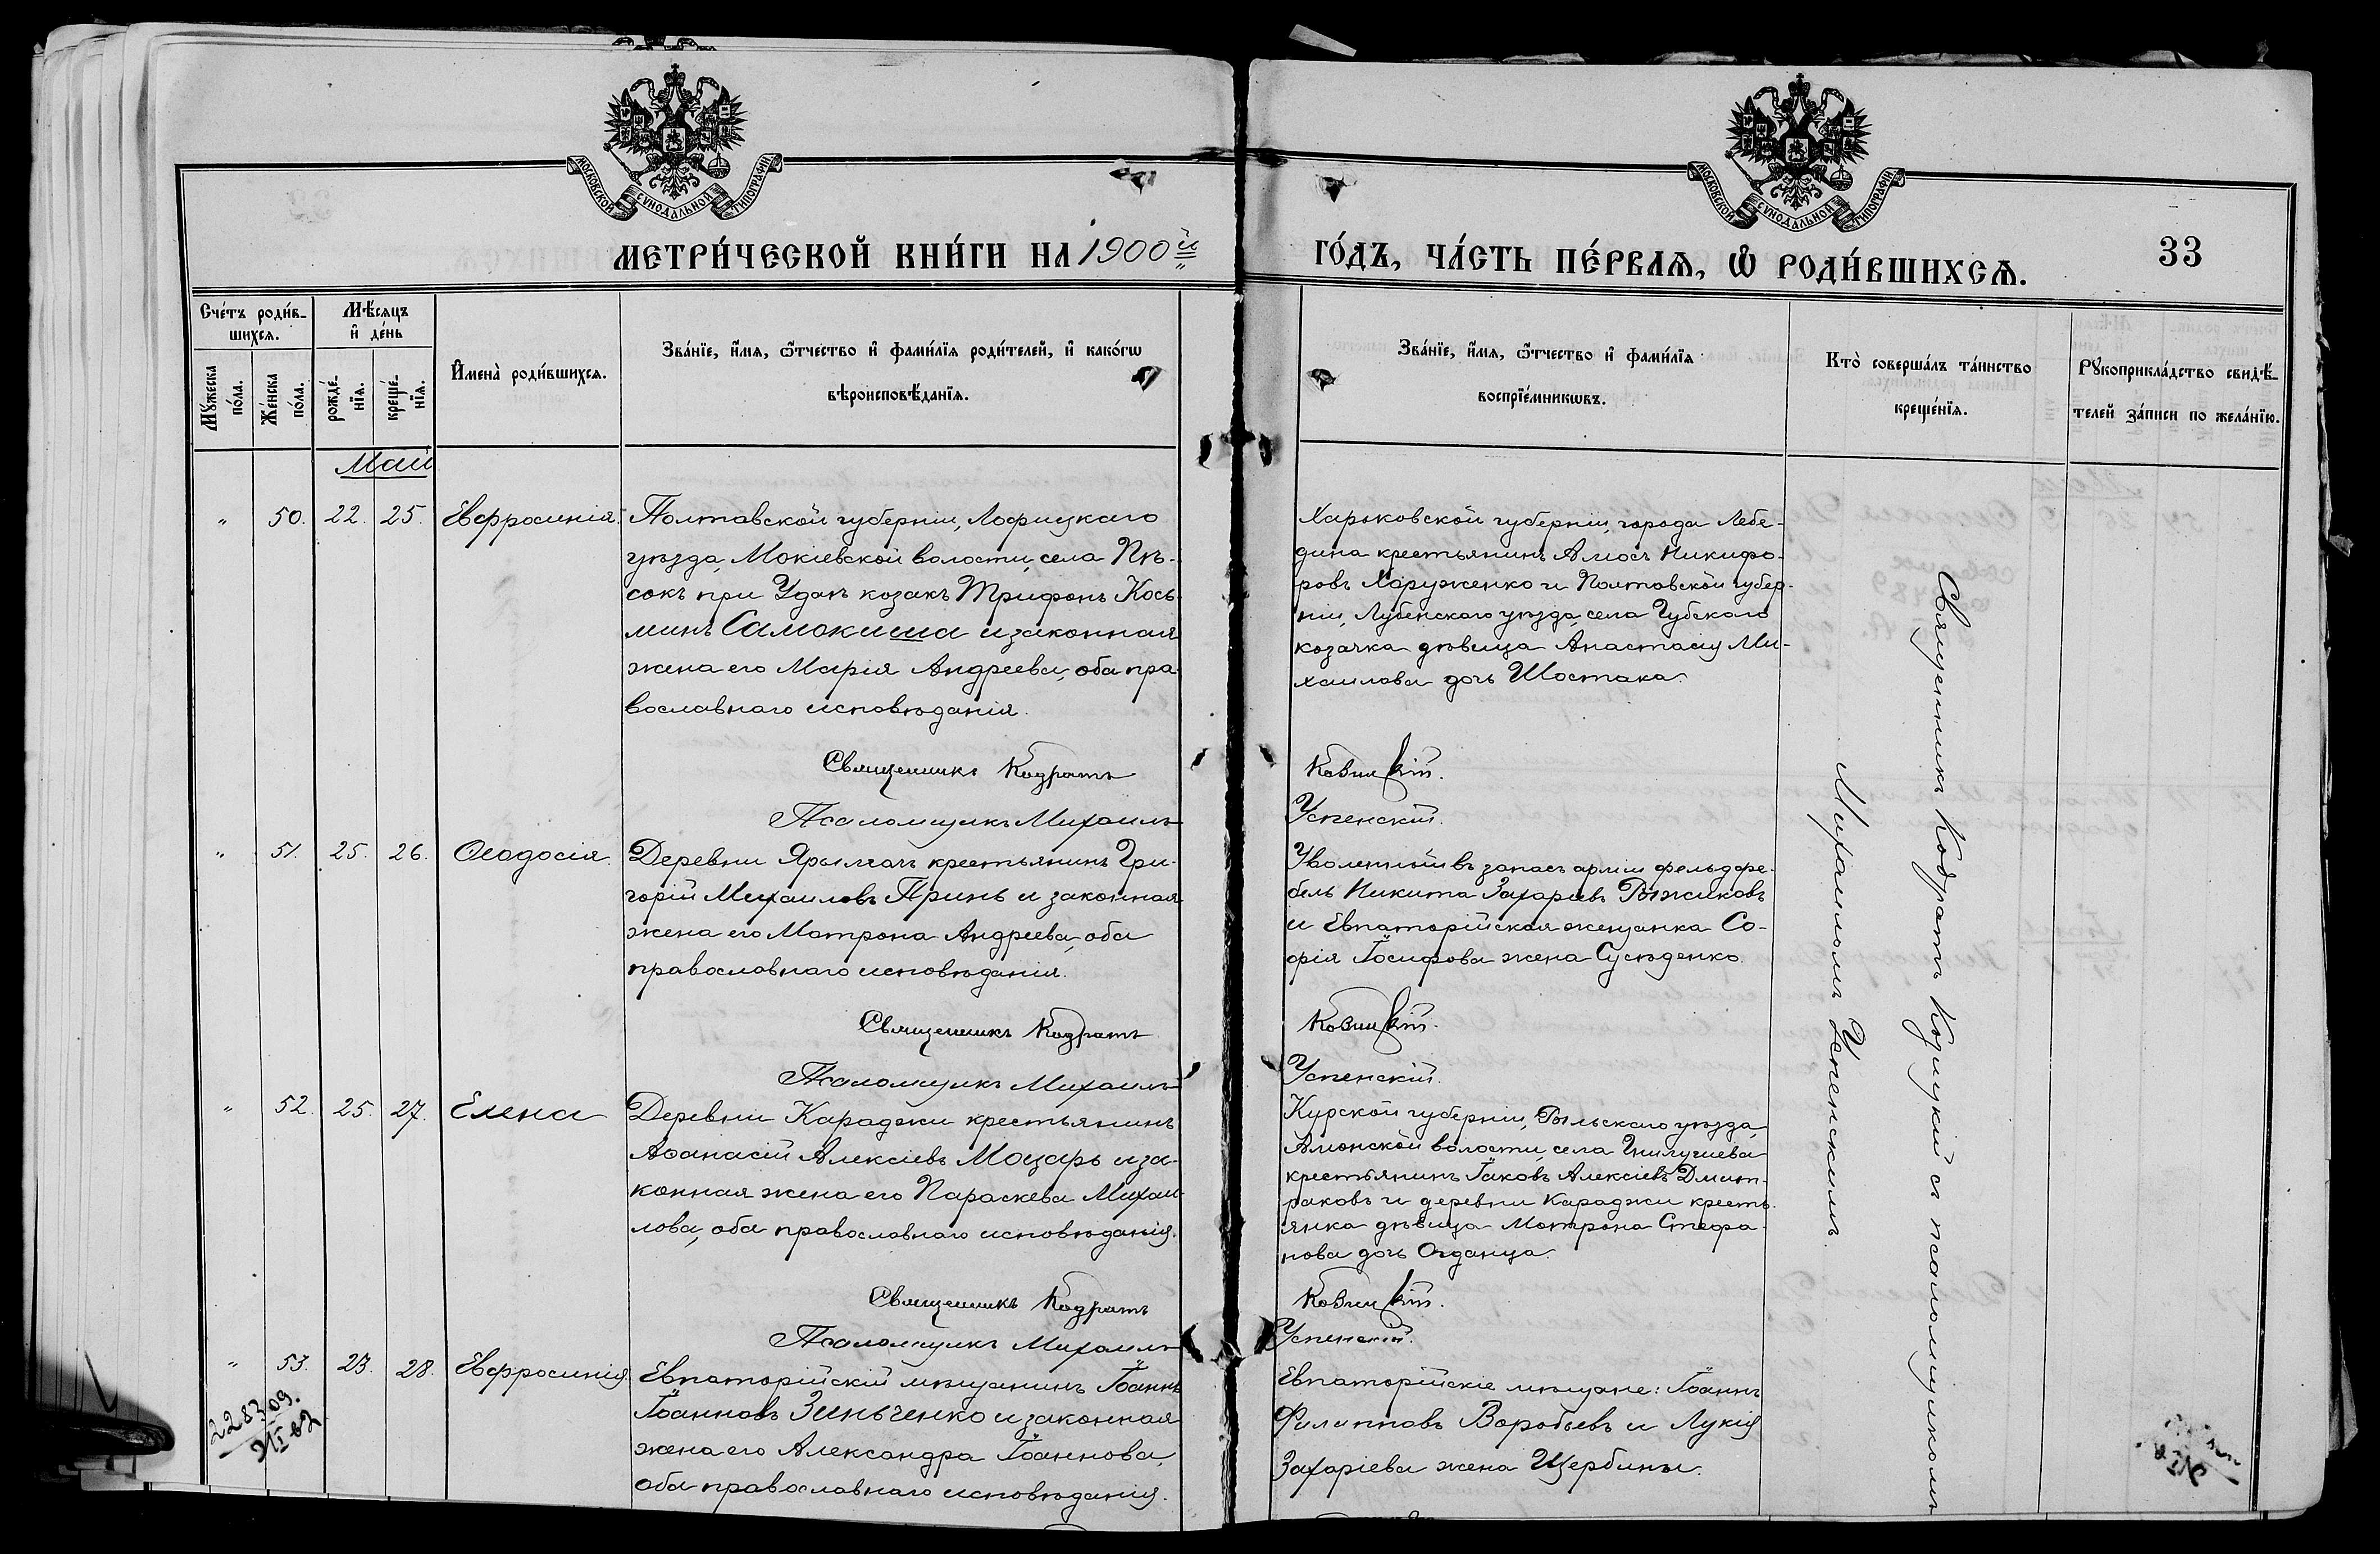 МОСКОВСКОЙ СѴНОДАЛЬНОЙ ТИПОГРАФІИ
МОСКОВСКОЙ СѴНОДАЛЬНОЙ ТИПОГРАФІИ
МЕТРИ́ЧЕСКОЙ КНИ́ГИ НА 1900й
ГО́ДЪ, ЧА́СТЬ ПЕ́РВАѦ, Ѡ҆ РОДИ́ВШИХСѦ.
33
Сче́тъ роди́в-
шихсѧ.
Мѣ́сѧцъ
и҆ де́нь
Мꙋ́жеска
по́ла.
Же́нска
по́ла.
рожде́-
нїѧ.
креще́-
нїѧ.
И҆мена̀ роди́вшихсѧ.
Зва́нїе, и҆́мѧ, ѻ҆́тчество и҆ фами́лїѧ роди́телей, и҆ како́гѡ
вѣроисповѣ́данїѧ.
Зва́нїе, и҆́мѧ, ѻ҆́тчество и҆ фами́лїѧ
воспрїе́мникѡвъ.
Кто̀ соверша́лъ та́инство
креще́нїѧ.
Рꙋкоприкла́дство свидѣ́-
телей за́писи по жела́нїю.
Май
" 50. 22. 25. Евфросинія.
Полтавской губерніи, Лофицкаго
уѣзда, Мокіевской волости, села Пѣ-
сокъ при Удаѣ козакъ Трифонъ Кось-
минъ Самокиша и законная
жена его Марія Андреева, оба пра-
вославнаго исповѣданія.
Священникъ Кодратъ
Псаломщикъ Михаилъ
Харьковской губерніи, города Лебе-
дина крестьянинъ Амосъ Никифо-
ровъ Харуженко и Полтавской губер-
ніи, Лубенскаго уѣзда, села Губскаго
козачка дѣвица Анастасія Ми-
хаилова дочь Шостака.
Козицкій.
Успенскій.
" 51. 25. 26. Ѳеодосія.
Деревни Ярылгачъ крестьянинъ Гри-
горій Михаиловъ Принь и законная
жена его Матрона Андреева, оба
православнаго исповѣданія.
Священникъ Кодратъ
Псаломщикъ Михаилъ
Уволенный въ запасъ арміи фельдфе-
бель Никита Захаріевъ Рыжиковъ
и Евпаторійская мещанка Со-
фія Іосифова жена Сусѣденко.
Козицкій.
Успенскій.
" 52. 25. 27. Елена
Деревни Караджи крестьянинъ
Аѳанасій Алексіевъ Моцарь и за-
конная жена его Параскева Михаи-
лова, оба православнаго исповѣданія.
Священникъ Кодратъ
Псаломщикъ Михаилъ
Курской губерніи, Рыльскаго уѣзда,
Амонской волости, села
крестьянинъ Іаковъ Алексіевъ Дмит-
раковъ и деревни Караджи кресть-
янка дѣвица Матрона Стефа-
нова дочь Огданца.
Козицкій.
Успенскій.
" 53. 23. 28. Евфросинія.
Евпаторійскій мѣщанинъ Іоаннъ
Іоанновъ Зинченко и законная
жена его Александра Іоаннова,
оба православнаго исповѣданія.
Евпаторійскіе мѣщане: Іоаннъ
Филипповъ Воробьевъ и Лукія
Захаріева жена Щербины.
Священникъ Кодратъ Козицкій съ псаломщикомъ
Михаиломъ Успенскимъ.
2283 09.